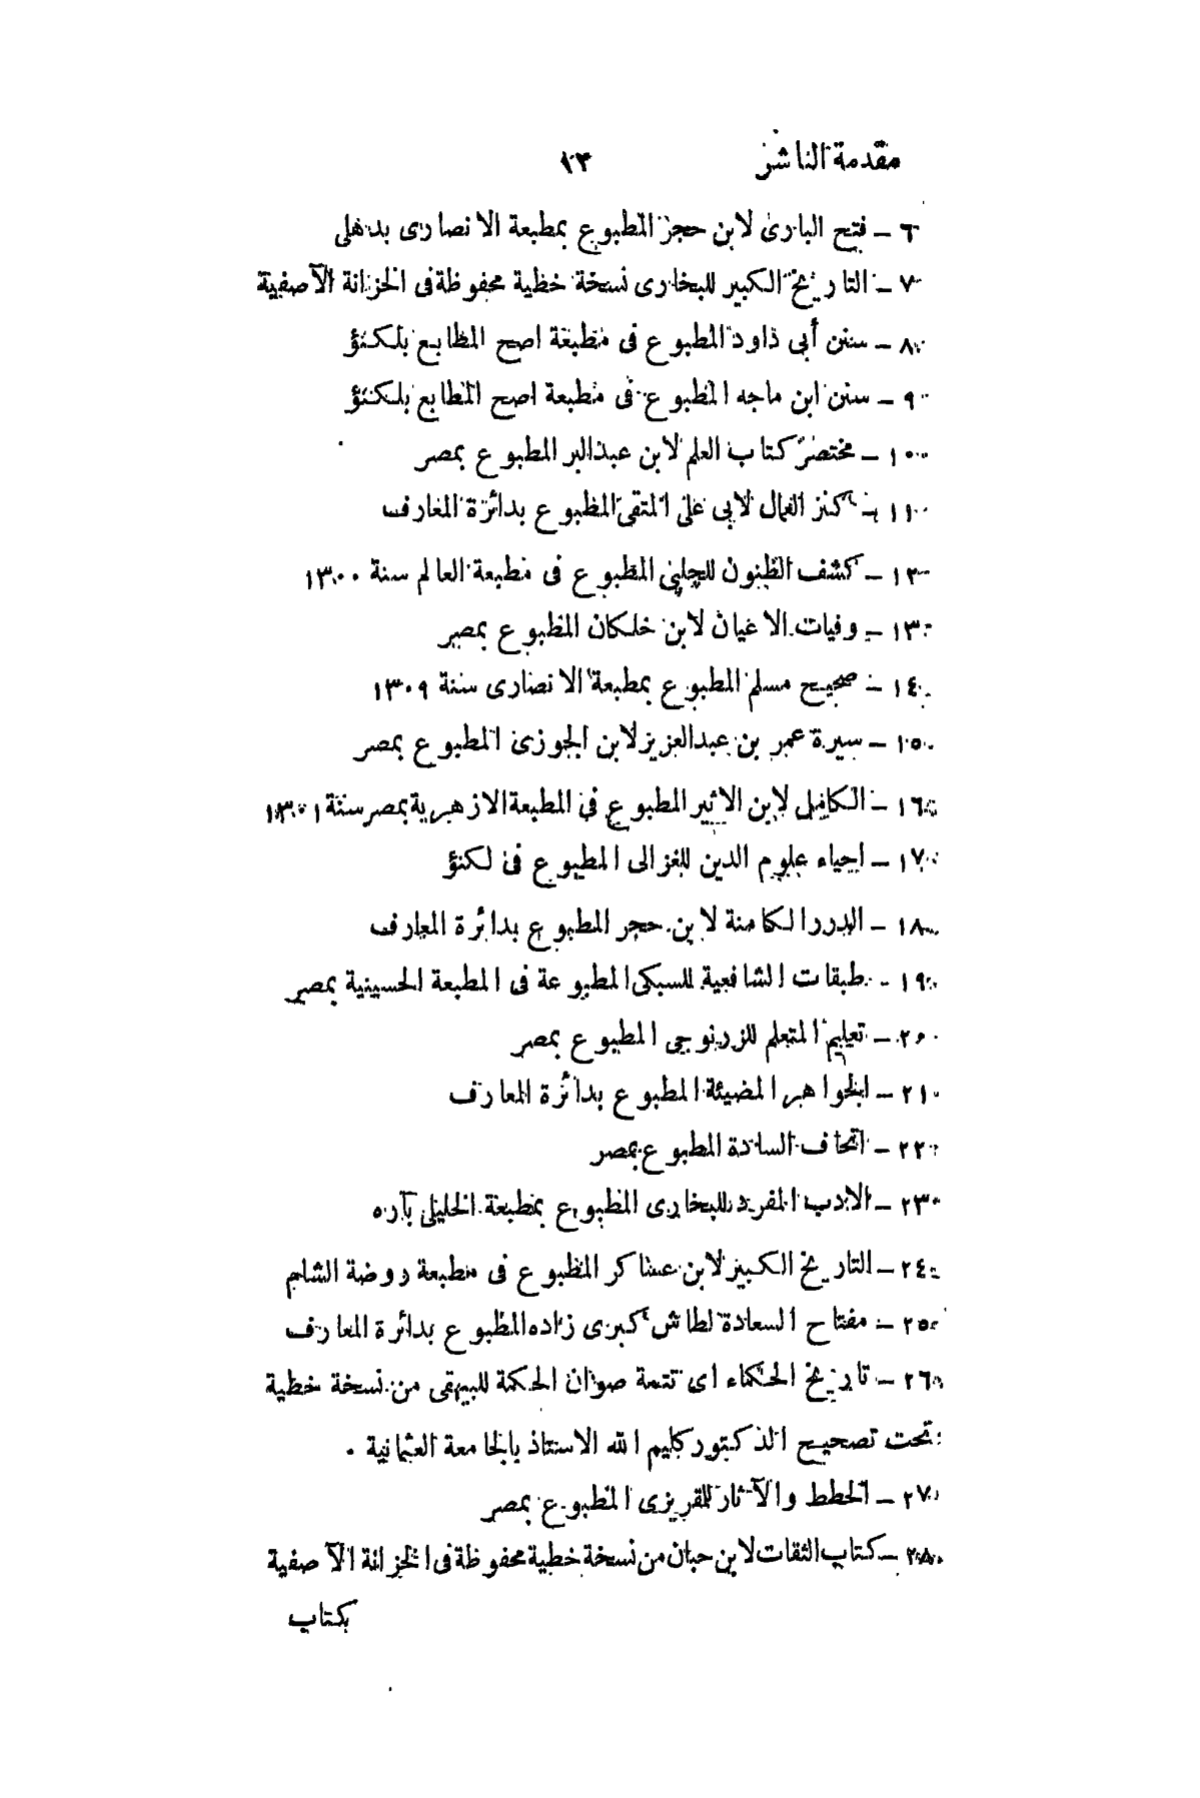 مقدمة الناشر ١٣
٦ – فتح البارى لابن حجر المطبوع بمطبعة الانصارى بدهلى
٧ – التاريخ الكبير للبخارى نسخة خطية محفوظة فى الخزانة الآصفية
٨ – سنن أبى داود المطبوع فى مطبعة اصح المطابع بلكنؤ
٩ – سنن ابن ماجه المطبوع فى مطبعة اصح المطابع بلكنؤ
١٠ – مختصر كتاب العلم لابن عبدالبر المطبوع بمصر
١١ – كنز العمال لابى على المتقى المطبوع بدائرة المعارف
١٢ – كشف الظنون للچلپى المطبوع فى مطبعة العالم سنة ١٣٠٠
١٣ – وفيات الاعيان لابن خلكان المطبوع بمصر
١٤ – صحيح مسلم المطبوع بمطبعة الانصارى سنة ١٣٠٩
١٥ – سيرة عمر بن عبدالعزيز لابن الجوزى المطبوع بمصر
١٦ – الكامل لابن الاثير المطبوع فى المطبعة الازهرية بمصر سنة ١٣٠١
١٧ – احياء علوم الدين للغزالى المطبوع فى لكنؤ
١٨ – الدرر الكامنة لابن حجر المطبوع بدائرة المعارف
١٩ – طبقات الشافعية للسبكى المطبوعة فى المطبعة الحسينية بمصر
٢٠ – تعليم المتعلم للزرنوجى المطبوع بمصر
٢١ – الجواهر المضيئة المطبوع بدائرة المعارف
٢٢ – اتحاف السادة المطبوع بمصر
٢٣ – الادب المفرد للبخارى المطبوع بمطبعة الخليلى بآره
٢٤ – التاريخ الكبير لابن عساكر المطبوع فى مطبعة روضة الشام
٢٥ – مفتاح السعادة لطاش كبرى زاده المطبوع بدائرة المعارف
٢٦ – تاريخ الحكماء اى تتمة صوان الحكمة للبيهقى من نسخة خطية
تحت تصحيح الدكتور كليم الله الاستاذ بالجامعة العثمانية .
٢٧ – الخطط والآثار للمقريزى المطبوع بمصر
٢٨ – كتاب الثقات لابن حبان من نسخة خطية محفوظة فى الخزانة الآصفية
كتاب